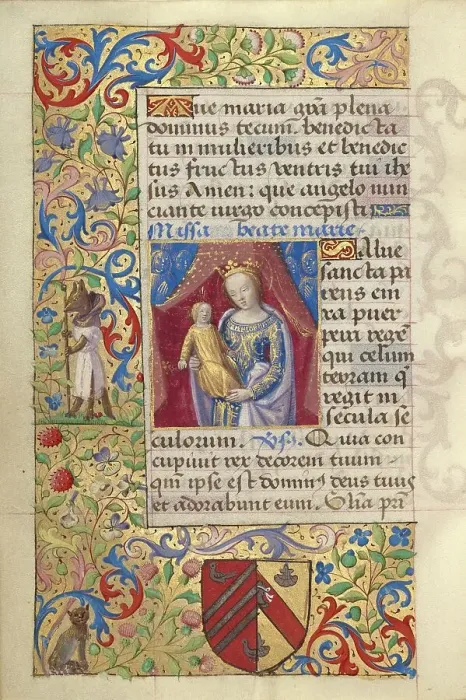 Aue maria grā plena
dominus tecum. benedicta
tu in mulieribus et benedic
tus fructus ventris tui ihe
sus Amen: que angelo nun
ciante uirgo concepisti
Missa beate marie
Salue
sancta pa
rens eni
xa puer
pera regē
qui celum
terram q̄
regit in
secula se
culorum. Vꝰ. Quia con
cupiuit rex decorem tuum
qm̄ ipse est dominꝰ deus tuus
et adorabunt eum. Glīa pr̄i